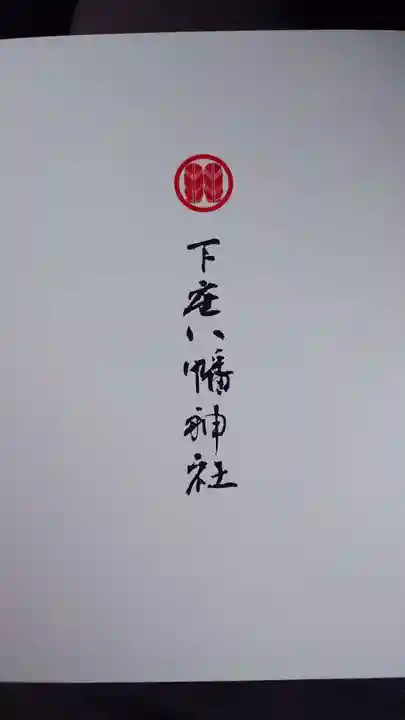 下庄八幡神社